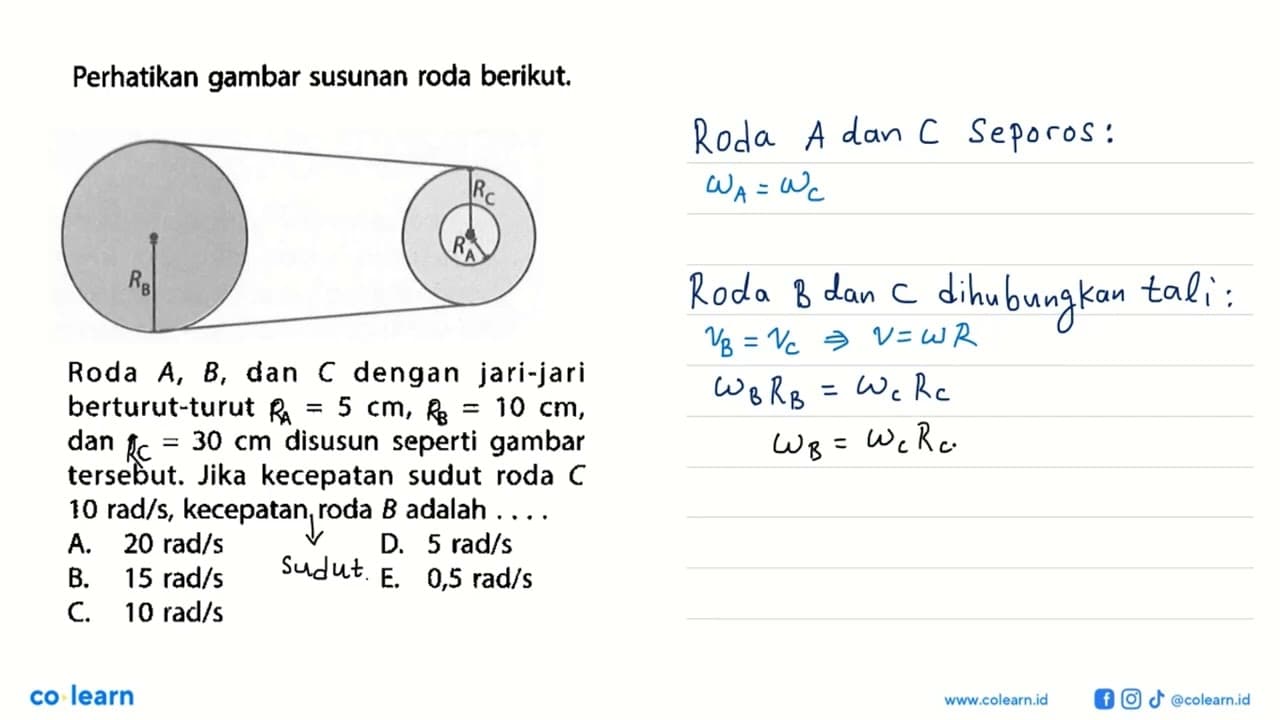 Perhatikan gambar susunan roda berikut.
R_B
R_C
R_A
Roda A, B, dan C dengan jari-jari
berturut-turut R_A = 5 cm, R_B = 10 cm,
dan R_C = 30 cm disusun seperti gambar
tersebut. Jika kecepatan sudut roda C
10 rad/s, kecepatan roda B adalah . . . .
sudut.
A. 20 rad/s
B. 15 rad/s
C. 10 rad/s
D. 5 rad/s
E. 0,5 rad/s
Roda A dan C Seporos:
ω_A = ω_C
Roda B dan C dihubungkan tali:
v_B = v_C ⇒ v = ωR
ω_B R_B = ω_C R_C
ω_B = ω_C R_C.
co learn
www.colearn.id
@colearn.id